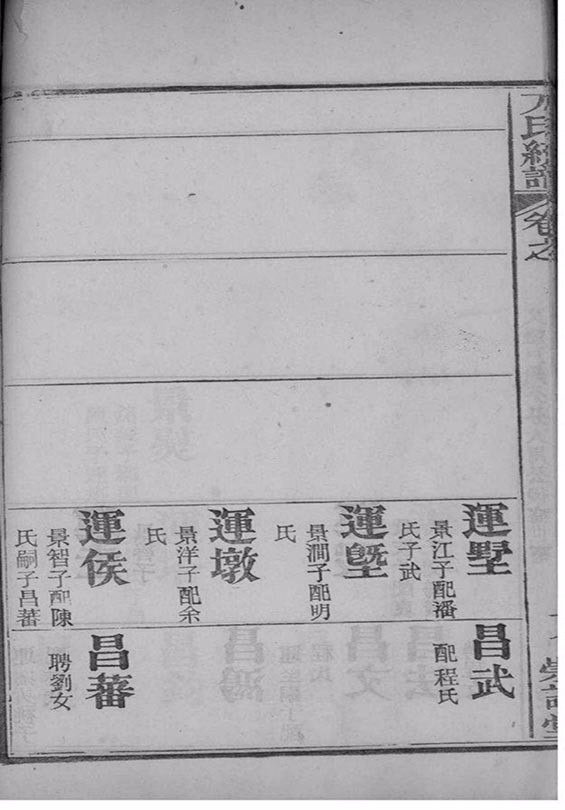 氏統譜
卷之
運墅
景江子配潘
氏子武
運塈
景澗子配明
氏
運墩
景洋子配余
氏
運侯
景智子配陳
氏嗣子昌蕃
昌武
配程氏
昌蕃
聘劉女